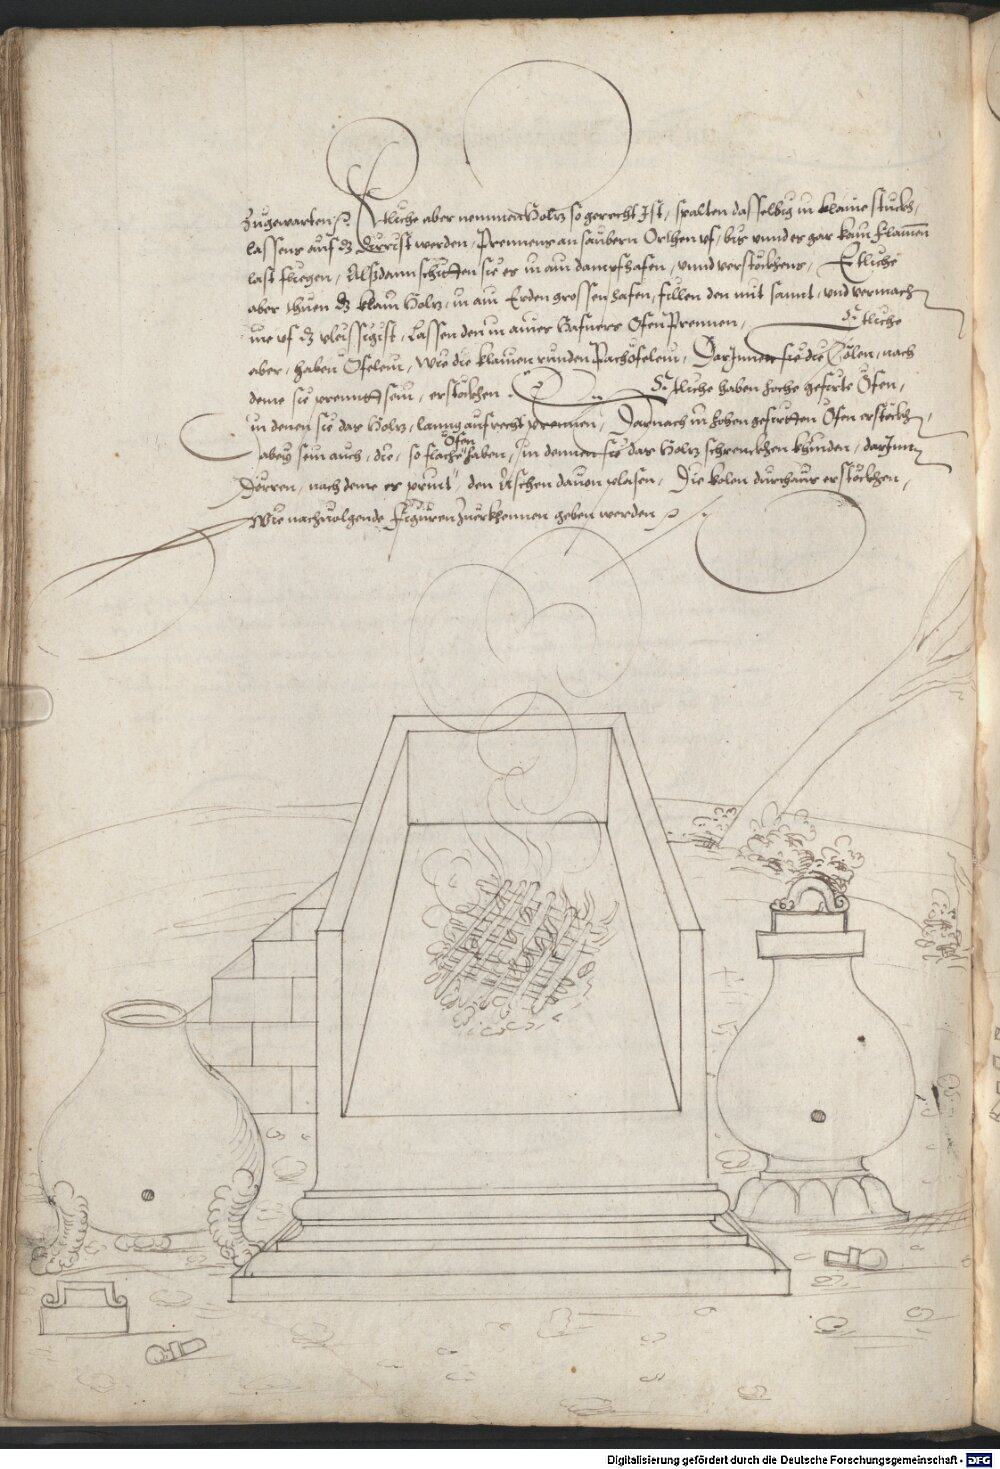 Zugewarten. Etliche aber nemmen Holtz so gerecht Ist, spalten dasselbig in klaine stuckh,
lassens auf dz dürrist werden, Prennens an saubern Orthen uf, bis unnd es gar kain flamen
last fliegen, Alßdann schitten sie es in ain dampfhafen, unnd verstöckhens, Etliche
aber thuen dz klain Holtz, in ain Erden grossen hafen, fillen den mit samnt, und vermach
ine uf dz vleissigist, Lassen den in aines Hafners Ofen Prennen, Etliche
aber, haben Öfelein, Wie die klainen runden Pachöfelein, Darinnen sie die Kolen, nach
deme sie prennth sein, erstöckhen. Etliche haben hoche gefirte Öfen,
in denen sie das Holtz, lanng aufrecht prennen, Darnach in hohen gefirtten Öfen erstöckh,
abey sein auch, die, so flache Öfen haben, In dennen sie das Holtz schrenckhen khinden, darInn
Dörren, nach deme es print, den Aschen davon plasen, Die kolen durchaus erstöckhen,
Wie nachvolgende Figuren Zuerkhennen geben werden
Digitalisierung gefördert durch die Deutsche Forschungsgemeinschaft - DFG